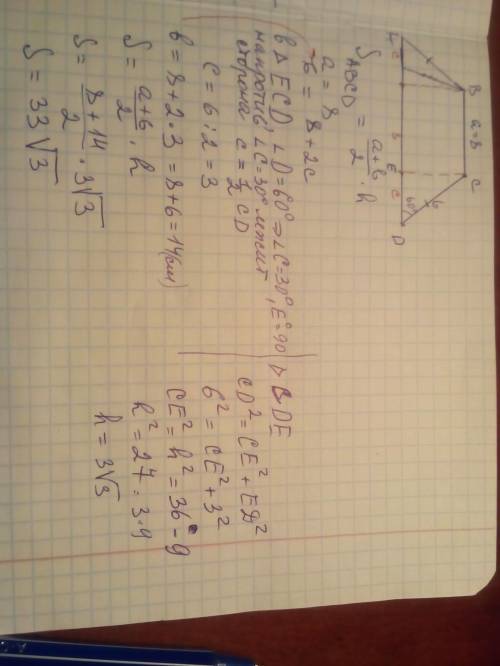 B a=8 C
A c в E c D
60° 6
S ABCD = a+в/2 · h
a = 8
в = 8 + 2c
в △ ECD ∠D=60° ⇒ ∠C=30°, E=90°
напротив ∠C=30° лежит
сторона c = 1/2 CD
c = 6 : 2 = 3
в = 8 + 2·3 = 8+6 = 14(см)
S = a+в/2 · h
S = 8+14/2 · 3√3
S = 33√3
△ BDE
CD² = CE² + ED²
6² = CE² + 3²
CE² = h² = 36 - 9
h² = 27 = 3·9
h = 3√3